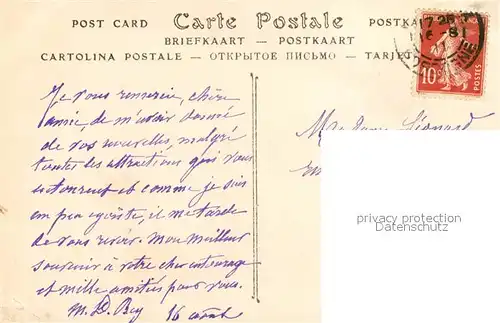 POST CARD Carte Postale POSTKA
BRIEFKAART — POSTKAART
CARTOLINA POSTALE — ОТКРЫТОЕ ПИСЬМО — TARJE
17 25
16 - 8
10c
POSTES
Je vous remercie, chère
amie, de m'avoir donné
de vos nouvelles, malgré
toutes les attractions qui vous
entourent et comme je suis
un peu égoïste, il me tarde
de vous revoir. Mon meilleur
souvenir à votre cher entourage
et mille amitiés pour vous.
M. D. Bey 16 août
Léonard
privacy protection
Datenschutz